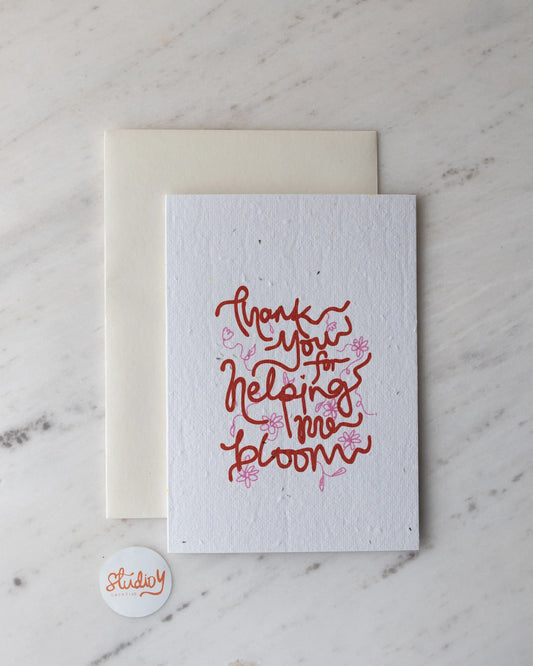 thank
you
for
helping
me
bloom
studio y
CREATIVE